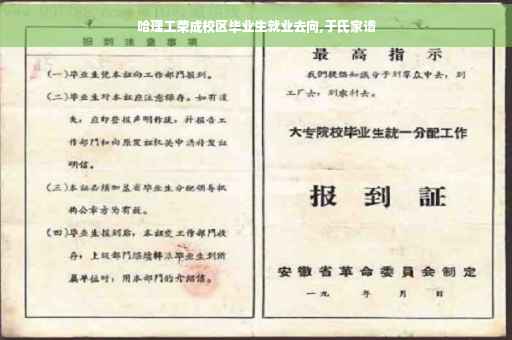 哈理工荣成校区毕业生就业去向,于氏家谱
报到注意事项
(一)毕业生凭本证向工作部门报到。
(二)毕业生对本证应注意保存。如有遗
失,应即登报声明作废,并报告工
作部门和向原发证机关申请补发证
明信。
(三)本证必须加盖省毕业生分配领导机
构公章方为有效。
(四)毕业生报到后,本证交工作部门收
存,上级部门继续转派毕业生到所
属单位时,用本部门的介绍信。
最高指示
我们提倡知识分子到群众中去,到
工厂去,到农村去。
大专院校毕业生統一分配工作
报到証
安徽省革命委員会制定
一九 年 月 日